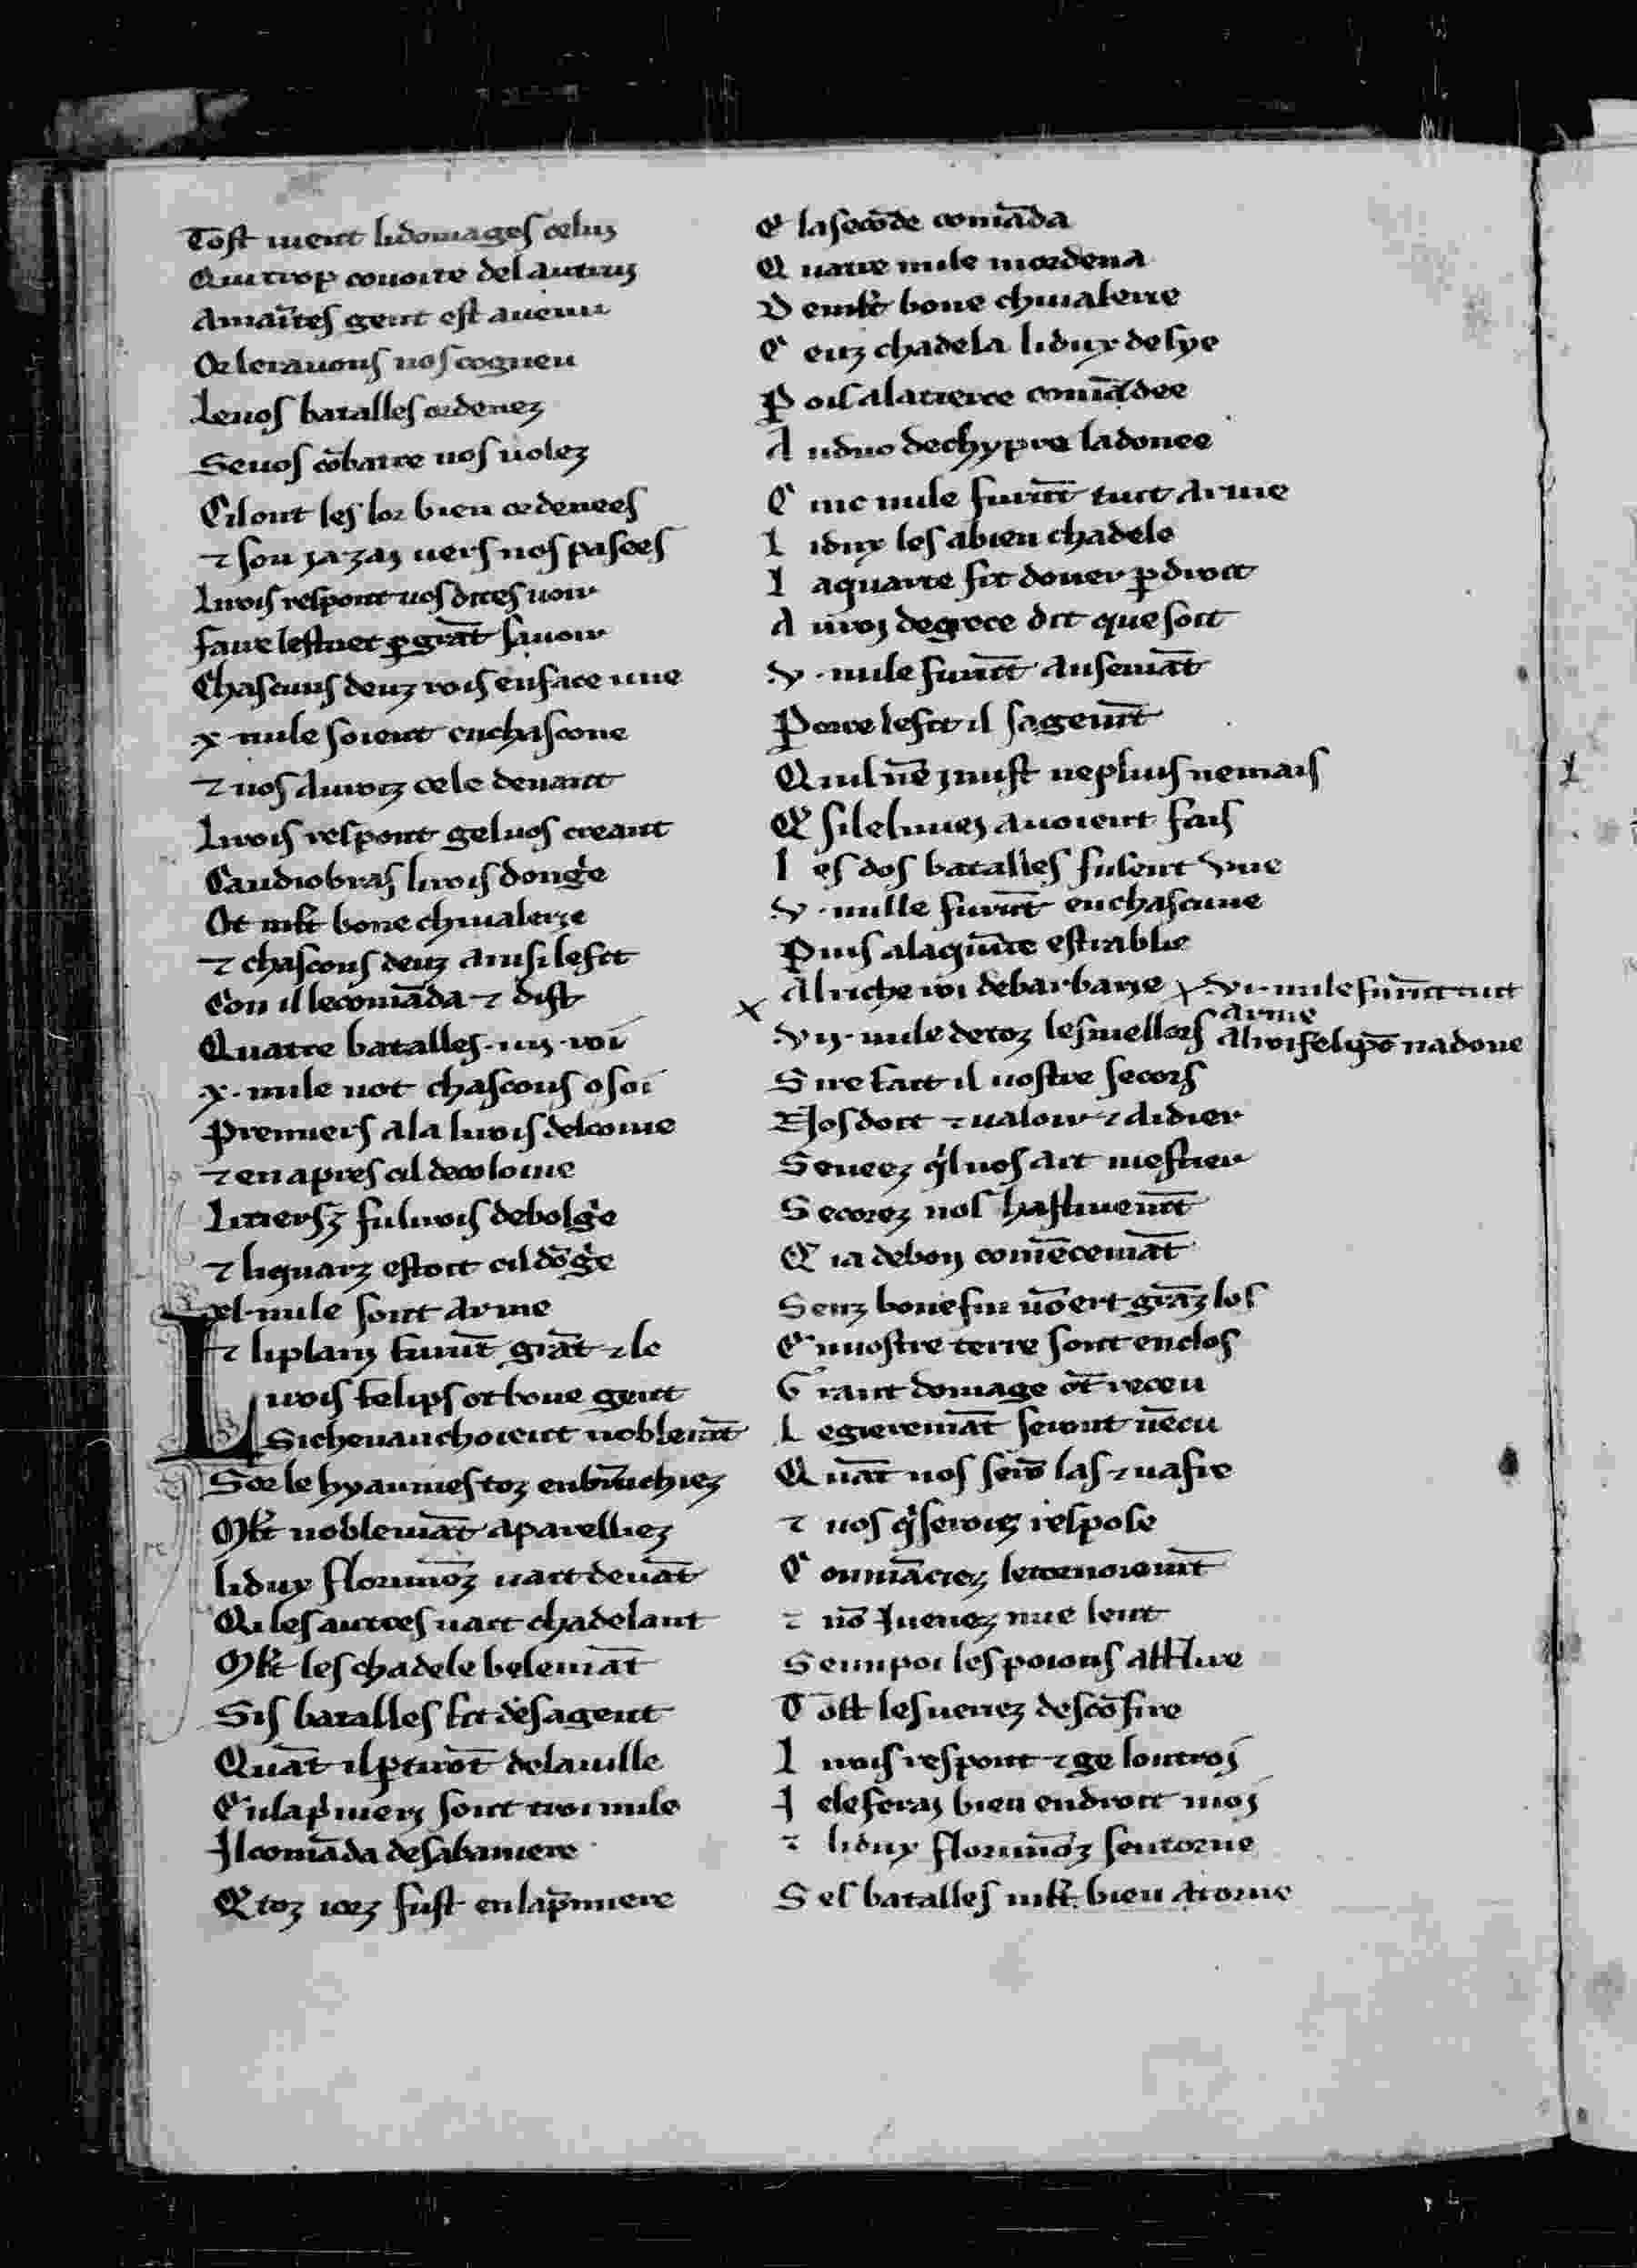 Tost uient lidomages celuj
Qui trop couoite del autruj
A maītes gent est auenu
Or lorauons nos cogneu
Le uos batalles ordenez
Se uos cōbatre uos uolez
Cil ont les lor bien ordenees
⁊ son ja zaj uers nos pasees
Li rois respont uos dites uoir
faire lestuet ꝑ grāt sauoir
Chascuns deuz rois en face une
.x. mile soient en chascone
⁊ uos auroiz cele deuant
Li rois respont ge luos creant
Candiobras li rois dongͥe
Ot ml̄t bone chiualerie
⁊ chascons deuz ansi le fet
Con il lecomāda ⁊ dist
Quatre batalles .iiij. roi
.x. mile not chascons o soi
Premiers ala li rois del come
⁊ en apres cil de colome
Li tiersz fu li rois de bolgͥe
⁊ li quarz estoit cil dōgͥe
.xl. mile sont arme
⁊ li plainj furūt grāt ⁊ le
Li rois felips ot bone gent
Si cheuauchoient noblemāt
Sor le hyaumes toz enbrūchiez
Ml̄t noblemāt aparelliez
li dux florimōz uait deuāt
Qi les autres uait chadelant
Ml̄t les chadele belemāt
Sis batalles fit de sa gent
Quāt il ꝑtirōt de la uille
En lap̄miers sont troi mile
Il comāda de sa baniere
Q̄ toz iorz fust en lap̄miere
E la secōde comāda
Q uatre mile mordena
D e ml̄t bone chiualerie
C euz chadela li dux de sye
P ois a la tierce comādee
A u duc de chypre la donee
C inc mile furēt tuit arme
L i dux les a bien chadele
L a quarte fit doner ꝑ droit
A u roj de grece dit que soit
.v. mile furēt ansemāt
Porce le fet il sagemēt
Qui nē j nust ne pluis ne mais
E si le liuez auoient fais
L es dos batalles fusent une
.v. mille furēt en chascune
Puis a laquīte establie
Al riche roi de barbarie x .vi. mile furēt tuit arme
x .vij. mile de toz les miellors Al roi felipō na done
S ire fait il uostre secors
Nos doit ⁊ ualoir ⁊ aidier
S e ueez qͥl nos ait mestier
S ecorez nos hastiuemēt
C ia de boj comēcemāt
S enz bone fin nō ert grāz los
E n uostre terre sont enclos
G rant domage ōt receu
L egieremāt seront uēcu
Q uāt nos serō las ⁊ nafre
⁊ uos qͥ seroiez respose
C onmāciez le tornoiemēt
⁊ nō i uenez mie lent
S e un poi les poions afflire
T ost les uerrez descōfire
L i rois respont ⁊ ge lotroj
J e le feraj bien endroit moj
⁊ li dux florimōz sentorne
S es batalles ml̄t bien atorne